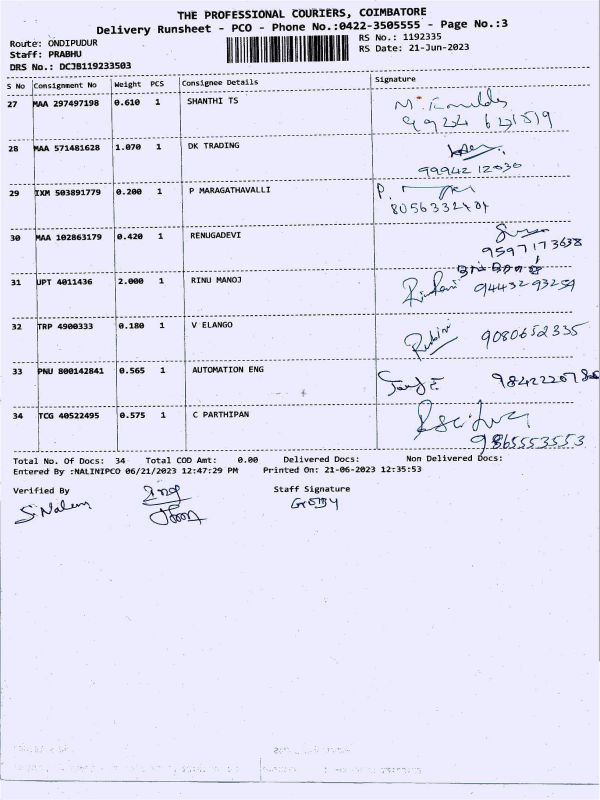 THE PROFESSIONAL COURIERS, COIMBATORE
Delivery Runsheet - PCO - Phone No.:0422-3505555 - Page No.:3
Route: ONDIPUDUR RS No.: 1192335
Staff: PRABHU RS Date: 21-Jun-2023
DRS No.: DCJB119233503
S No Consignment No Weight PCS Consignee Details Signature
27 MAA 297497198 0.610 1 SHANTHI TS
28 MAA 571481628 1.070 1 DK TRADING
9994212030
29 IXM 503891779 0.200 1 P MARAGATHAVALLI P.
30 MAA 102863179 0.420 1 RENUGADEVI
9597173638
31 UPT 4011436 2.000 1 RINU MANOJ
9443293259
32 TRP 4900333 0.180 1 V ELANGO 9080652335
33 PNU 800142841 0.565 1 AUTOMATION ENG
34 TCG 40522495 0.575 1 C PARTHIPAN
9865553553
Total No. Of Docs: 34 Total COD Amt: 0.00 Delivered Docs: Non Delivered Docs:
Entered By :NALINIPCO 06/21/2023 12:47:29 PM Printed On: 21-06-2023 12:35:53
Verified By Staff Signature